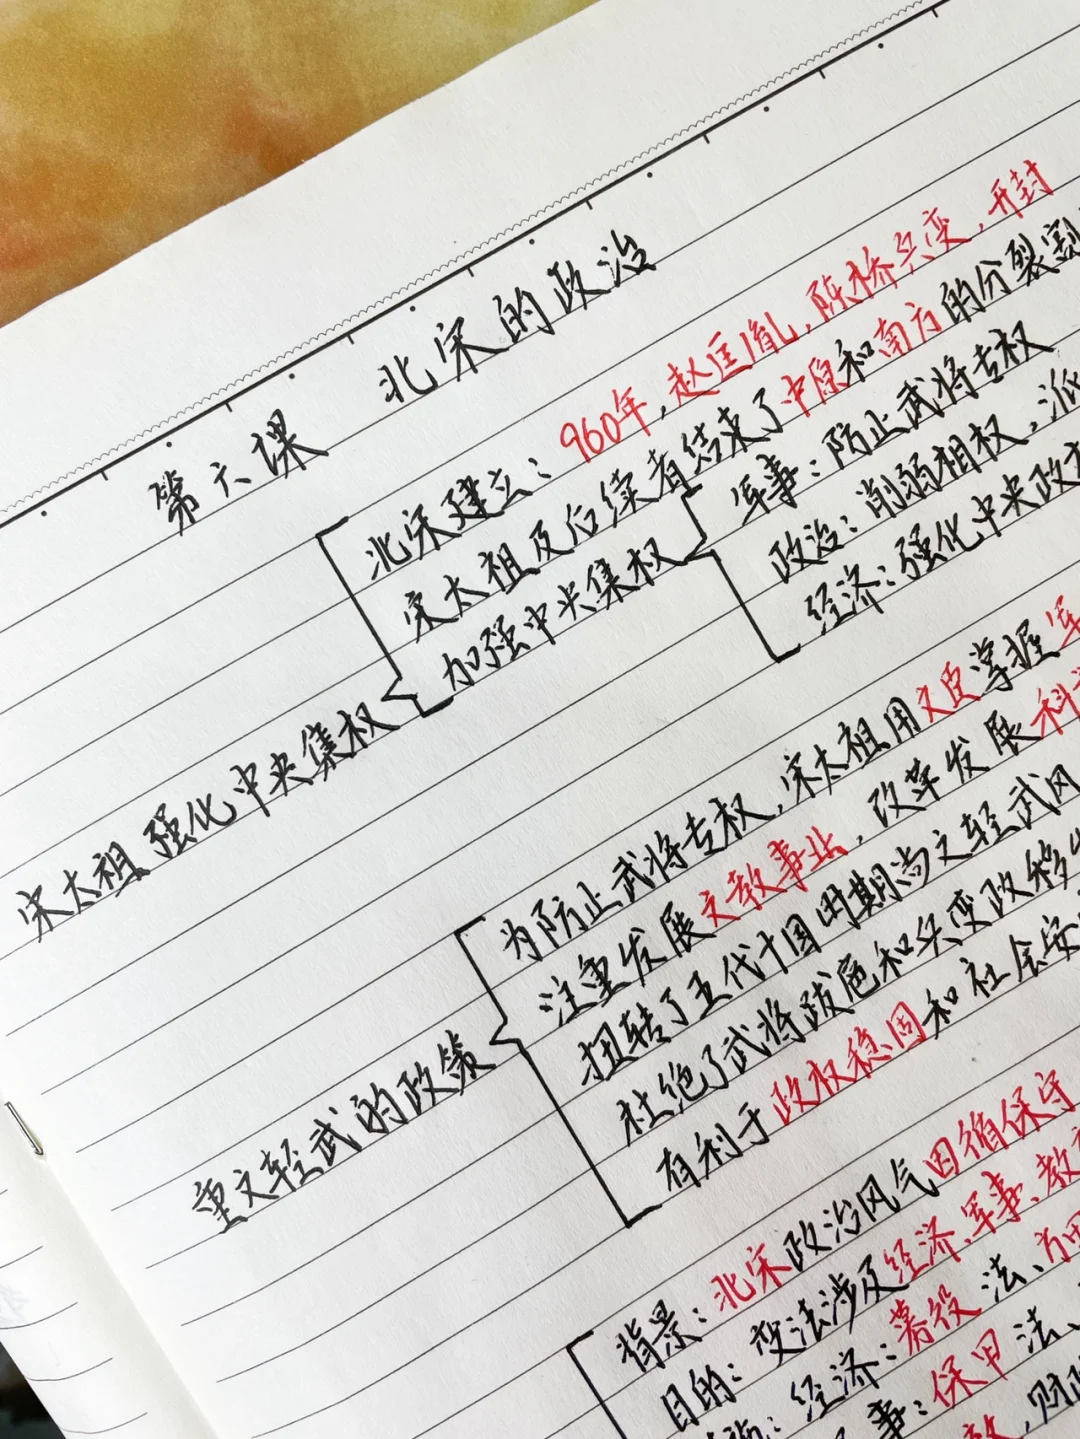 第六课 北宋的政治
北宋建立：960年，赵匡胤，陈桥兵变，开封
宋太祖及后续者结束了中原和南方的分裂割
加强中央集权
军事：防止武将专权
政治：削弱相权，派
经济：强化中央政
宋太祖强化中央集权
为防止武将专权，宋太祖用文臣掌握军
注重发展文教事业，改革发展科
扭转了五代十国时期尚文轻武风
杜绝了武将跋扈和兵变政移
有利于政权稳固和社会安
重文轻武的政策
背景：北宋政治风气因循保守
目的：变法涉及经济、军事、教
经济：募役法、方田
事：保甲法、
，财政